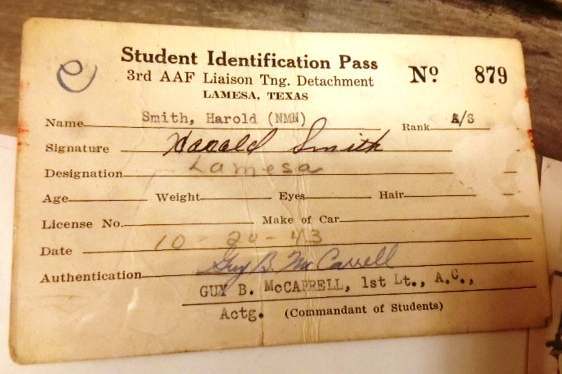 Student Identification Pass
3rd AAF Liaison Tng. Detachment
LAMESA, TEXAS
No 879
e
Name Smith, Harold (NMN) Rank A/S
Signature Harold Smith
Designation Lamesa
Age Weight Eyes Hair
License No. Make of Car
Date 10-20-43
Authentication Guy B. McCarrell
GUY B. McCARRELL, 1st Lt., A.C.,
Actg. (Commandant of Students)